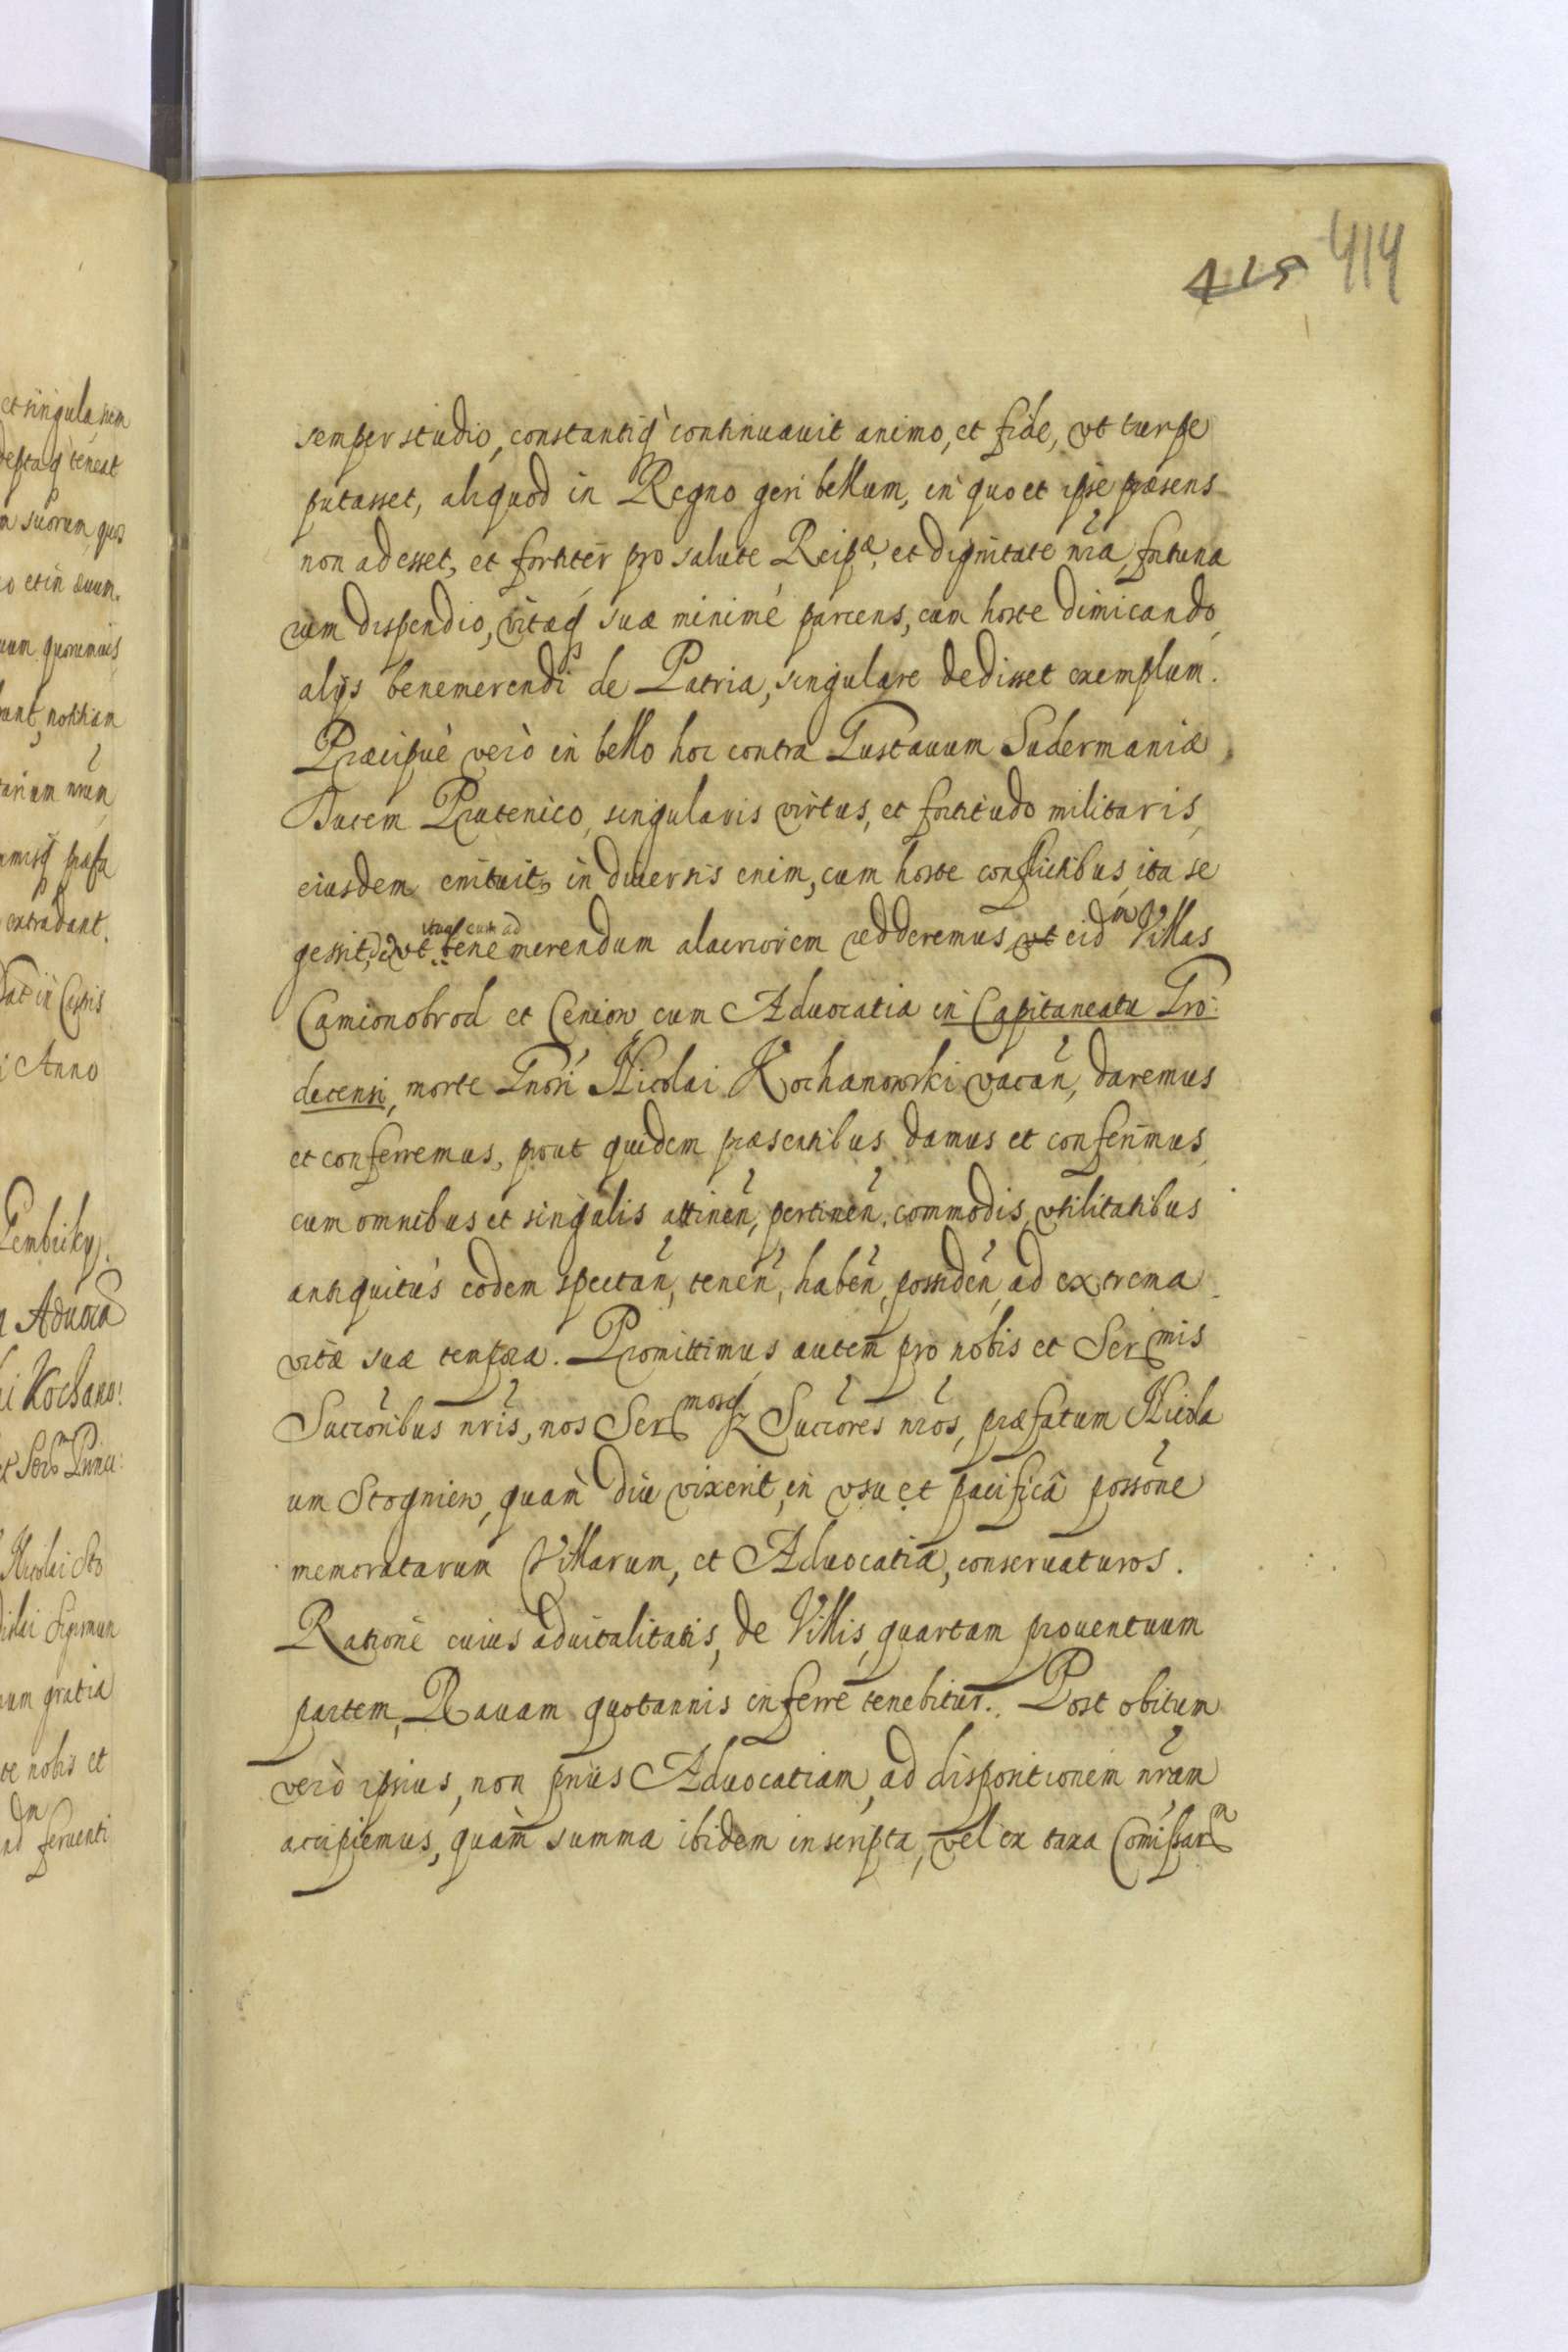 415 414
semper studio, constantiq; continuauit animo, et fide, vt turpe
putasset, aliquod in Regno geri bellum, in quo et ipse præsens
non adesset, et fortiter pro salute Reipæ, et dignitate nrã, fortuna
rum dispendio, vitæq; suæ minimè parcens, cum hoste dimicando,
alijs benemerendi de Patria, singulare dedisset exemplum.
Præcipuè verò in bello hoc contra Gustauum Sudermaniæ
Ducem Prutenico, singularis virtus, et fortitudo militaris
eiusdem enituit, in diuersis enim, cum hoste conflictibus, ita se
cum ad
gessit, vt bene merendum alacriorem redderemus, vt eidm Villas
Camionobrod et Ceniow cum Aduocatia in Capitaneatu Gro:
decensi, morte Gnosi Nicolai Kochanowski vacañ, daremus
et conferremus, prout quidem præsentibus damus et conferimus,
cum omnibus et singulis attineñ, pertineñ, commodis, vtilitatibus
antiquitùs eodem spectañ, teneñ, habeñ, possideñ, ad extrema
vitæ suæ tempora. Promittimus autem pro nobis et Sermis
Succoribus nris, nos Sermosq; Succores nros, præfatum Nicola
um Stogniew, quam diu vixerit, in vsu et pacificâ possõne
memoratarum Villarum, et Aduocatiæ, conseruaturos.
Ratione cuius aduitalitatis, de Villis, quartam prouentuum
partem, Rauam quotannis inferre tenebitur. Post obitum
verò ipsius, non priùs Aduocatiam, ad dispositionem nram
accipiemus, quàm summa ibidem inscripta, vel ex taxa Comissar

et singularem
teneat
suorum quos
et in æuum.
quoniamuis
notitiam
nrum
præfa
extradant.
in Castris
Anno
Gembicky.
Aduoca
Kochano:
Princ:
Nicolai Sto
Sigismun
gratia
nobis et
feruenti